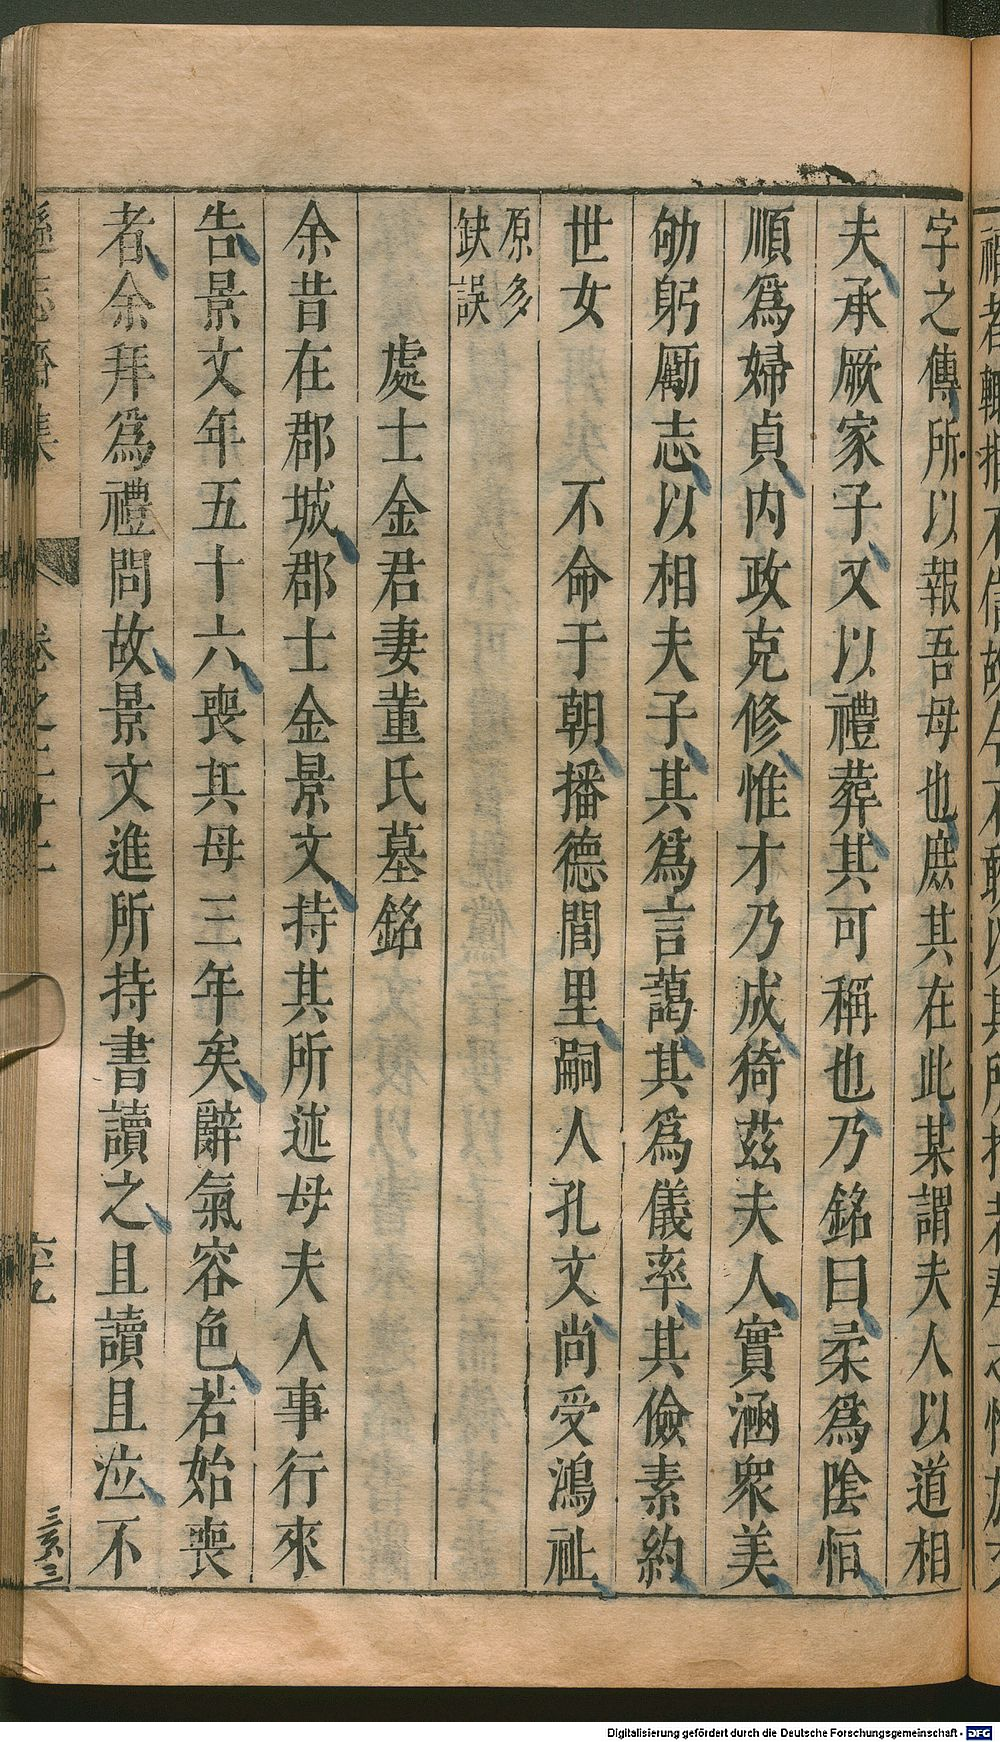 字之傳所以報吾母也庶其在此某謂夫人以道相
夫承厥家子又以禮葬其可稱也乃銘曰柔爲陰恒
順爲婦貞内政克修惟才乃成猗茲夫人實涵衆美
劬躬勵志以相夫子其爲言藹其爲儀率其儉素約
世女不命于朝播德閭里嗣人孔文尚受鴻祉
原多
缺誤
處士金君妻董氏墓銘
余昔在郡城郡士金景文持其所述母夫人事行來
告景文年五十六喪其母三年矣辭氣容色若始喪
者余拜爲禮問故景文進所持書讀之且讀且泣不
遜志齋集
卷之二十二
三亥三
Digitalisierung gefördert durch die Deutsche Forschungsgemeinschaft - DFG